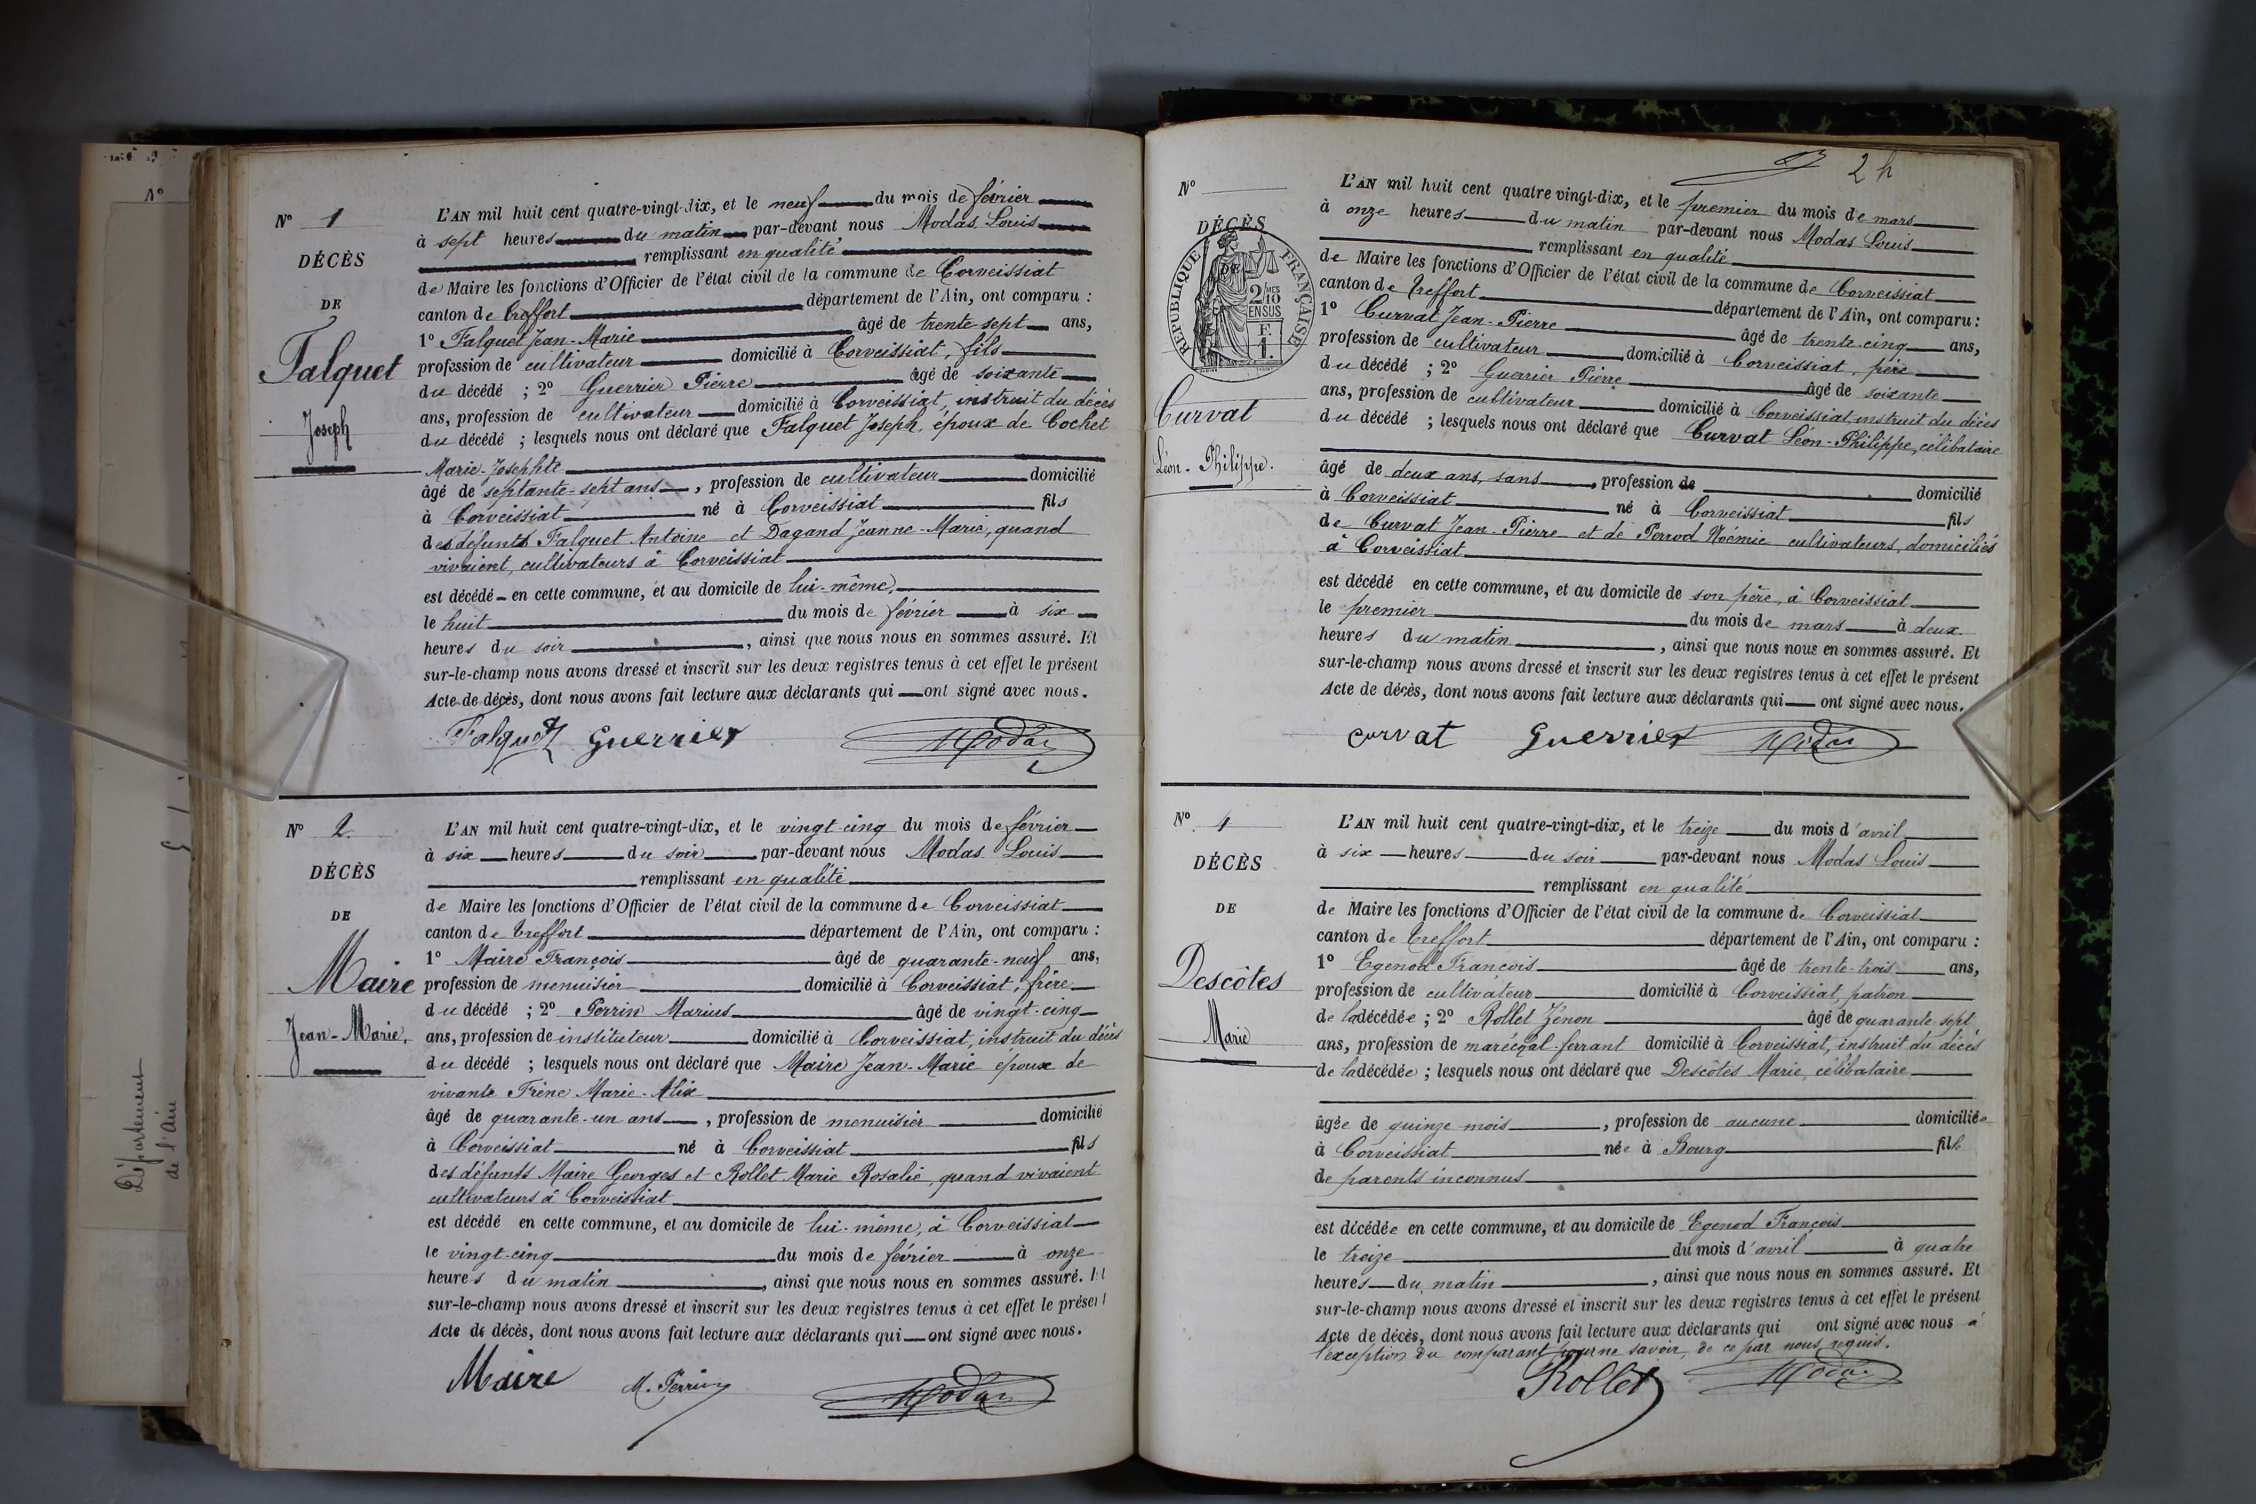 N° 1
DÉCÈS
DE
Falquet
Joseph
L'AN mil huit cent quatre-vingt-dix, et le neuf du mois de février
à sept heures du matin par-devant nous Modas Louis
remplissant en qualité
de Maire les fonctions d'Officier de l'état civil de la commune de Corveissiat
canton de Treffort département de l'Ain, ont comparu :
1° Falquet Jean-Marie âgé de trente-sept ans,
profession de cultivateur domicilié à Corveissiat, fils
du décédé ; 2° Guerrier Pierre âgé de soixante
ans, profession de cultivateur domicilié à Corveissiat, instruit du décès
du décédé ; lesquels nous ont déclaré que Falquet Joseph, époux de Cochet
Marie-Josephte
âgé de septante-sept ans, profession de cultivateur domicilié
à Corveissiat né à Corveissiat fils
des défunts Falquet Antoine et Dagand Jeanne-Marie, quand
vivaient, cultivateurs à Corveissiat
est décédé en cette commune, et au domicile de lui-même,
le huit du mois de février à six
heures du soir, ainsi que nous nous en sommes assuré. Et
sur-le-champ nous avons dressé et inscrit sur les deux registres tenus à cet effet le présent
Acte de décès, dont nous avons fait lecture aux déclarants qui ont signé avec nous.
Falquet Guerrier Modas
N° 2.
DÉCÈS
DE
Maire
Jean-Marie.
L'AN mil huit cent quatre-vingt-dix, et le vingt-cinq du mois de février
à six heures du soir par-devant nous Modas Louis
remplissant en qualité
de Maire les fonctions d'Officier de l'état civil de la commune de Corveissiat
canton de Treffort département de l'Ain, ont comparu :
1° Maire François âgé de quarante-neuf ans,
profession de menuisier domicilié à Corveissiat, frère
du décédé ; 2° Perrin Marius âgé de vingt-cinq
ans, profession de instituteur domicilié à Corveissiat, instruit du décès
du décédé ; lesquels nous ont déclaré que Maire Jean-Marie époux de
vivante Frène Marie-Alix
âgé de quarante-un ans, profession de menuisier domicilié
à Corveissiat né à Corveissiat fils
des défunts Maire Georges et Rollet Marie Rosalie, quand vivaient
cultivateurs à Corveissiat
est décédé en cette commune, et au domicile de lui-même, à Corveissiat
le vingt-cinq du mois de février à onze
heures du matin, ainsi que nous nous en sommes assuré. Et
sur-le-champ nous avons dressé et inscrit sur les deux registres tenus à cet effet le présent
Acte de décès, dont nous avons fait lecture aux déclarants qui ont signé avec nous.
Maire M. Perrin Modas
Département
de l'ain
N°
2
N°
DÉCÈS
DE
RÉPUBLIQUE FRANÇAISE
2/10 MES
EN SUS
F.
1.
Curvat
Léon-Philippe.
L'AN mil huit cent quatre vingt-dix, et le premier du mois de mars
à onze heures du matin par-devant nous Modas Louis
remplissant en qualité
de Maire les fonctions d'Officier de l'état civil de la commune de Corveissiat
canton de Treffort département de l'Ain, ont comparu :
1° Curvat Jean-Pierre âgé de trente-cinq ans,
profession de cultivateur domicilié à Corveissiat, père
du décédé ; 2° Guerrier Pierre âgé de soixante
ans, profession de cultivateur domicilié à Corveissiat, instruit du décès
du décédé ; lesquels nous ont déclaré que Curvat Léon-Philippe, célibataire
âgé de deux ans, sans, profession de domicilié
à Corveissiat né à Corveissiat fils
de Curvat Jean-Pierre et de Perrod Noémie cultivateurs, domiciliés
à Corveissiat
est décédé en cette commune, et au domicile de son père, à Corveissiat
le premier du mois de mars à deux
heures du matin, ainsi que nous nous en sommes assuré. Et
sur-le-champ nous avons dressé et inscrit sur les deux registres tenus à cet effet le présent
Acte de décès, dont nous avons fait lecture aux déclarants qui ont signé avec nous.
Curvat Guerrier Modas
N° 4
DÉCÈS
DE
Descôtes
Marie
L'AN mil huit cent quatre-vingt-dix, et le treize du mois d'avril
à six heures du soir par-devant nous Modas Louis
remplissant en qualité
de Maire les fonctions d'Officier de l'état civil de la commune de Corveissiat
canton de Treffort département de l'Ain, ont comparu :
1° Egenod François âgé de trente-trois ans,
profession de cultivateur domicilié à Corveissiat, patron
de la décédée ; 2° Rollet Zénon âgé de quarante-sept
ans, profession de maréchal-ferrant domicilié à Corveissiat, instruit du décès
de la décédée ; lesquels nous ont déclaré que Descôtes Marie, célibataire
âgée de quinze mois, profession de aucune domiciliée
à Corveissiat née à Bourg fille
de parents inconnus
est décédée en cette commune, et au domicile de Egenod François
le treize du mois d'avril à quatre
heures du matin, ainsi que nous nous en sommes assuré. Et
sur-le-champ nous avons dressé et inscrit sur les deux registres tenus à cet effet le présent
Acte de décès, dont nous avons fait lecture aux déclarants qui ont signé avec nous à
l'exception du comparant pour ne savoir, de ce par nous requis.
Rollet Modas